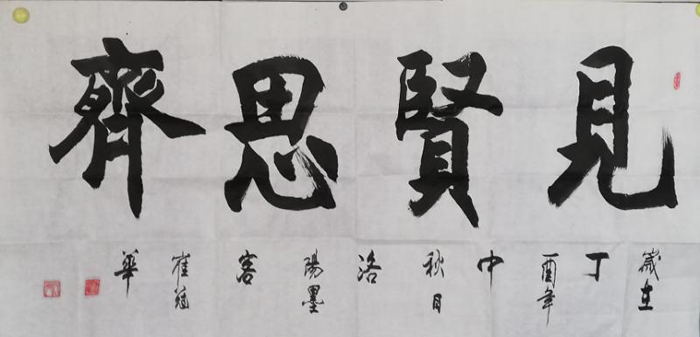 見賢思齊
歲在丁酉年中秋月洛陽墨客崔福華